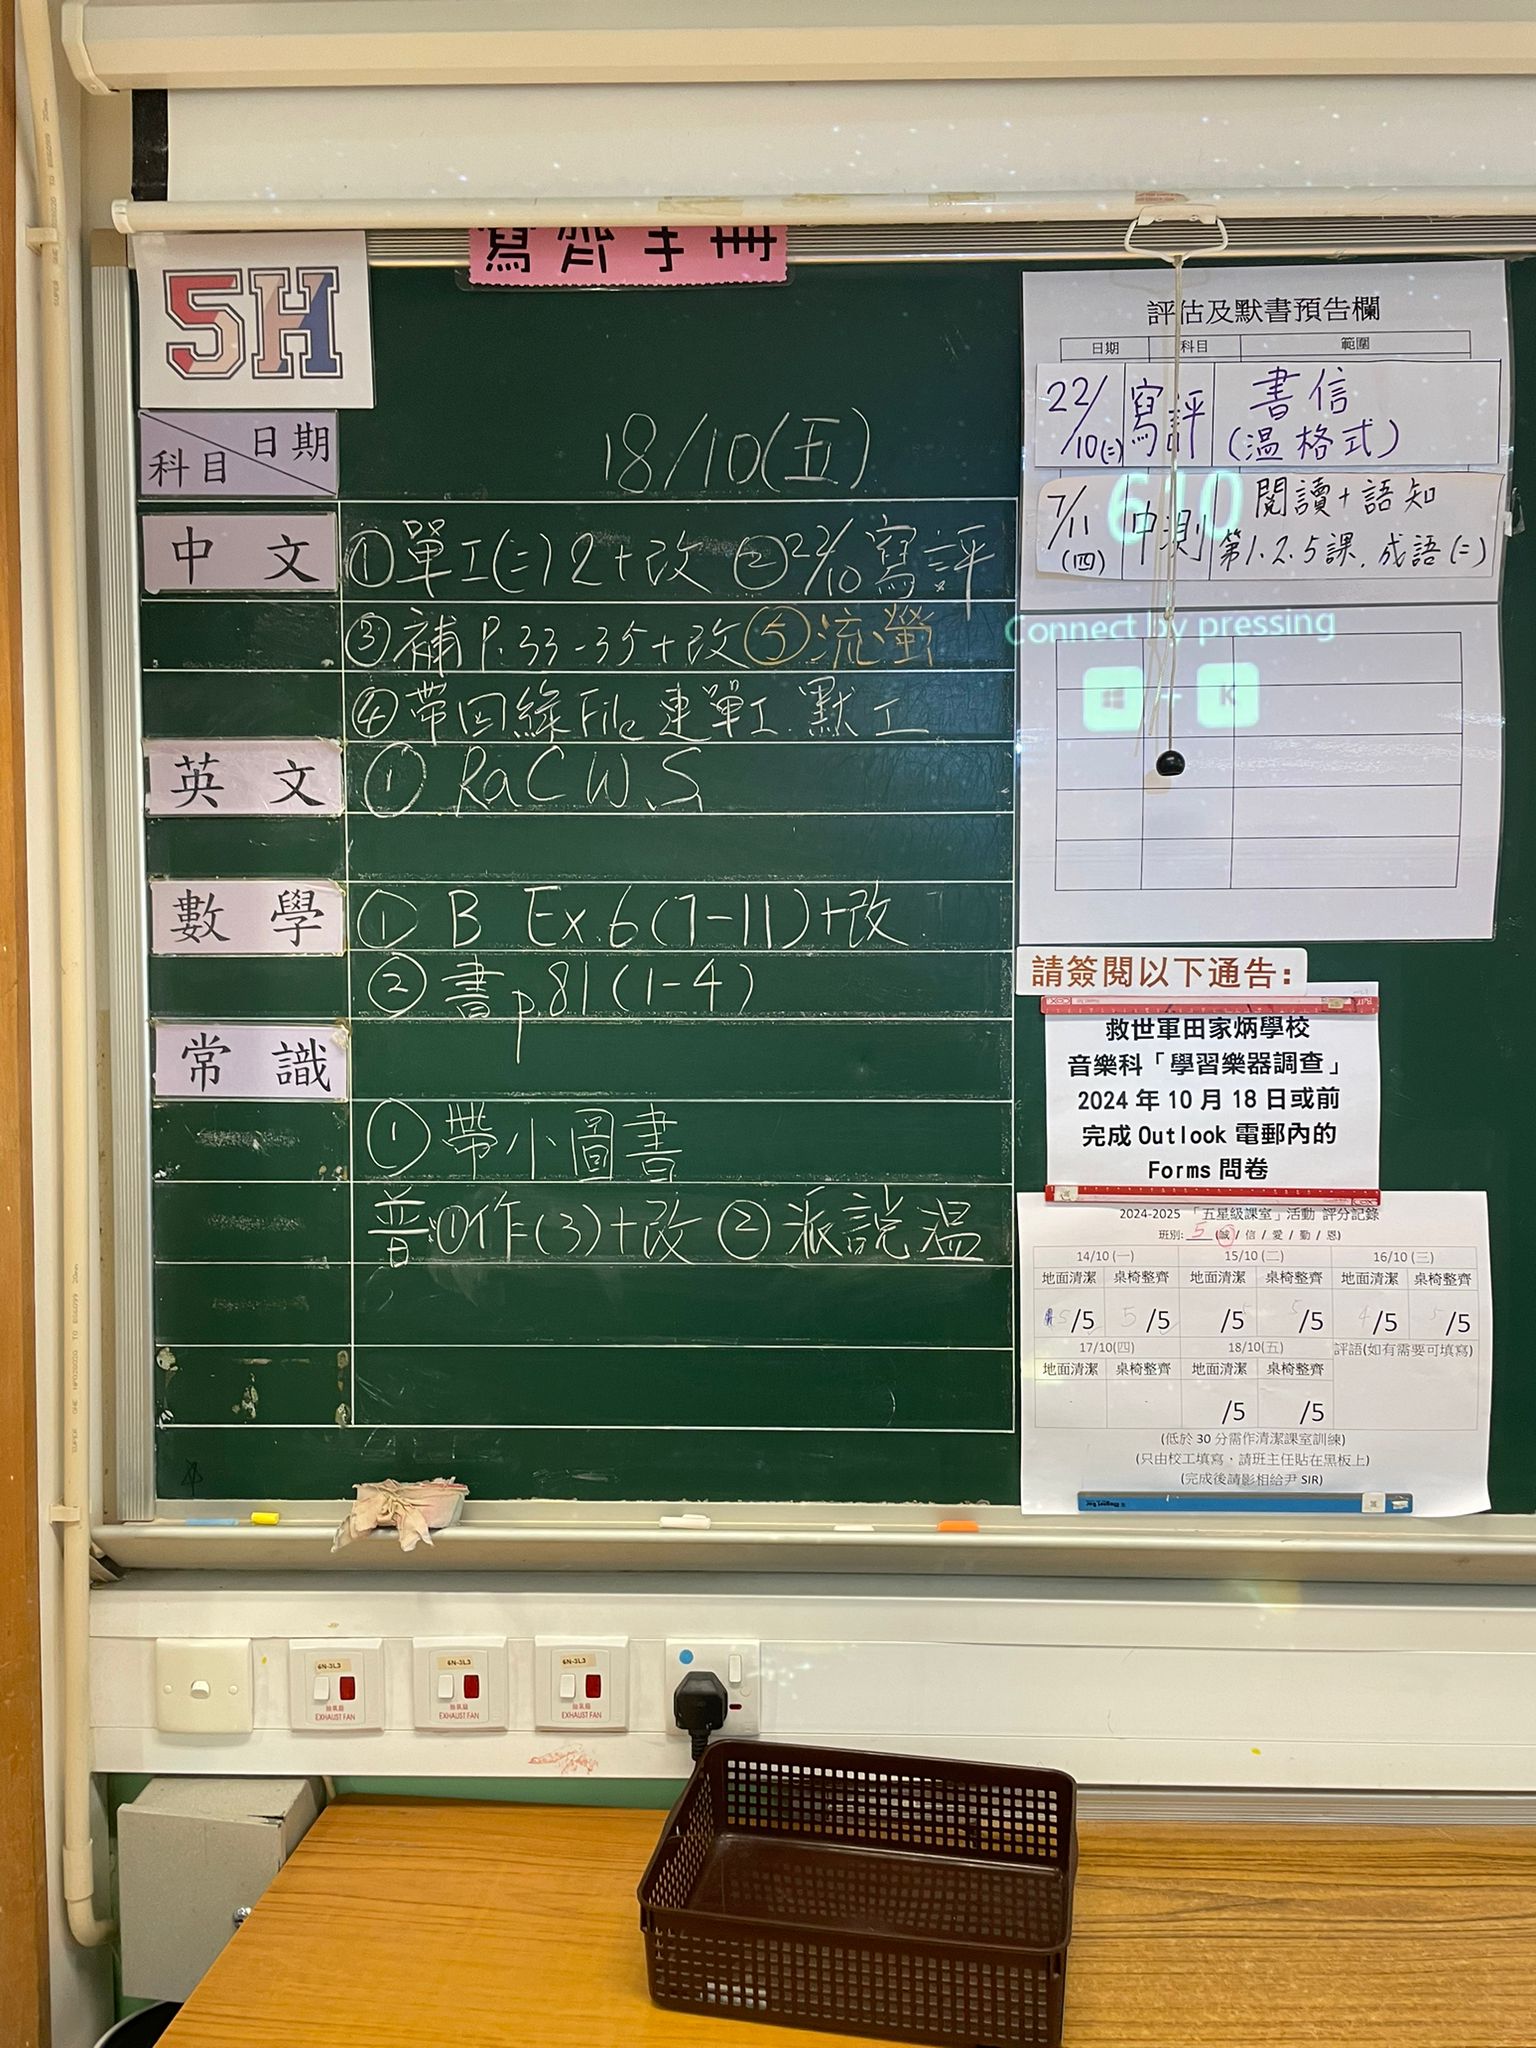 寫齊手冊
5H
日期
科目
18/10(五)
中文
①單工(二)2+改 ②22/10寫評
③補P.33-35+改 ⑤流螢
④帶回綠File連單工.默工
英文
① RaCWS
數學
① B Ex.6(7-11)+改
② 書p.81(1-4)
常識
① 帶小圖書
普:①作(3)+改 ②派說溫
評估及默書預告欄
日期 科目 範圍
22/10(二) 寫評 書信
(溫格式)
7/11(四) 中測 閱讀+語知
第1.2.5課.成語(二)
610
Connect by pressing
K
請簽閱以下通告:
救世軍田家炳學校
音樂科「學習樂器調查」
2024 年 10 月 18 日或前
完成 Outlook 電郵內的
Forms 問卷
2024-2025 「五星級課室」活動 評分記錄
班別: 5 (誠/信/愛/勤/恩)
14/10 (一) 15/10 (二) 16/10 (三)
地面清潔 桌椅整齊 地面清潔 桌椅整齊 地面清潔 桌椅整齊
5/5 5/5 5/5 5/5 4/5 5/5
17/10(四) 18/10(五) 評語(如有需要可填寫)
地面清潔 桌椅整齊 地面清潔 桌椅整齊
/5 /5
(低於 30 分需作清潔課室訓練)
(只由校工填寫，請班主任貼在黑板上)
(完成後請影相給尹 SIR)
6N-3L3 6N-3L3 6N-3L3
抽氣扇 抽氣扇 抽氣扇
EXHAUST FAN EXHAUST FAN EXHAUST FAN